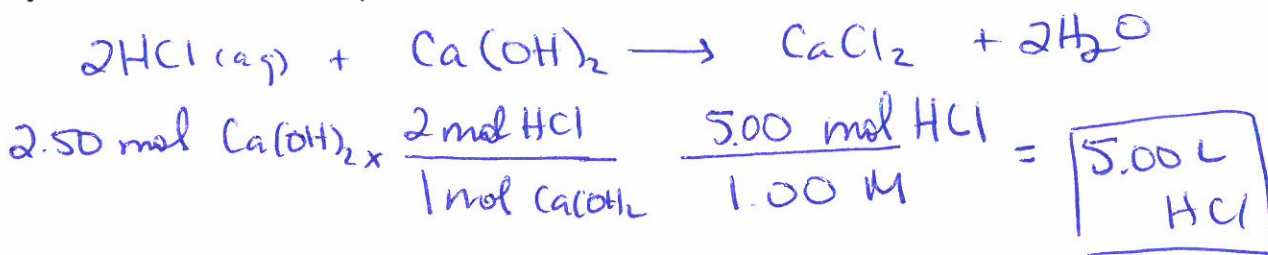 2HCl (aq) + Ca(OH)₂ → CaCl₂ + 2H₂O
2.50 mol Ca(OH)₂ x 2 mol HCl / 1 mol Ca(OH)₂ 5.00 mol HCl / 1.00 M = 5.00 L HCl